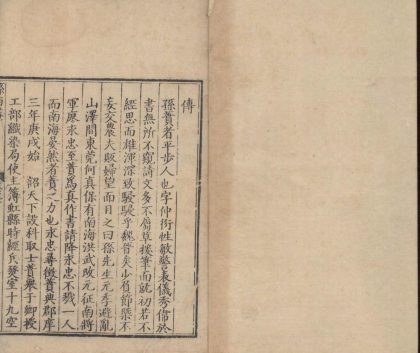 傳
孫蕡者平步人也字仲衍性敏慧長儀秀偉於
書無所不窺詩文多不屬草搦筆而就初若不
經思而雄渾深致駸駸乎魏晉矣少負節槩不
妄交農夫販婦望而目之曰孫先生元季避亂
山澤間東莞何真保有南海洪武改元征南將
軍廖永忠至蕡爲真作書請降永忠不戮一人
而南海晏然者蕡之力也永忠尋徵蕡典郡庠
三年庚戌始 詔天下設科取士蕡舉于鄉授
工部織染局使 主簿虹縣時經兵燹室十九空